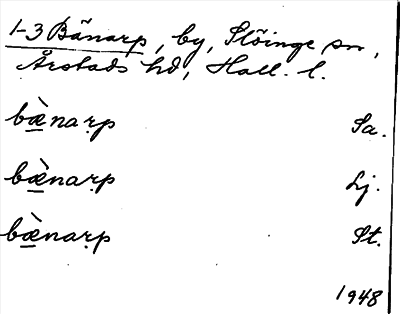 1-3 Bänarp, by, Slöinge sn,
Årstads hd, Hall. l.
bæ̀naṛp Sa.
bæ̀naṛp Lj.
bæ̀naṛp St.
1948